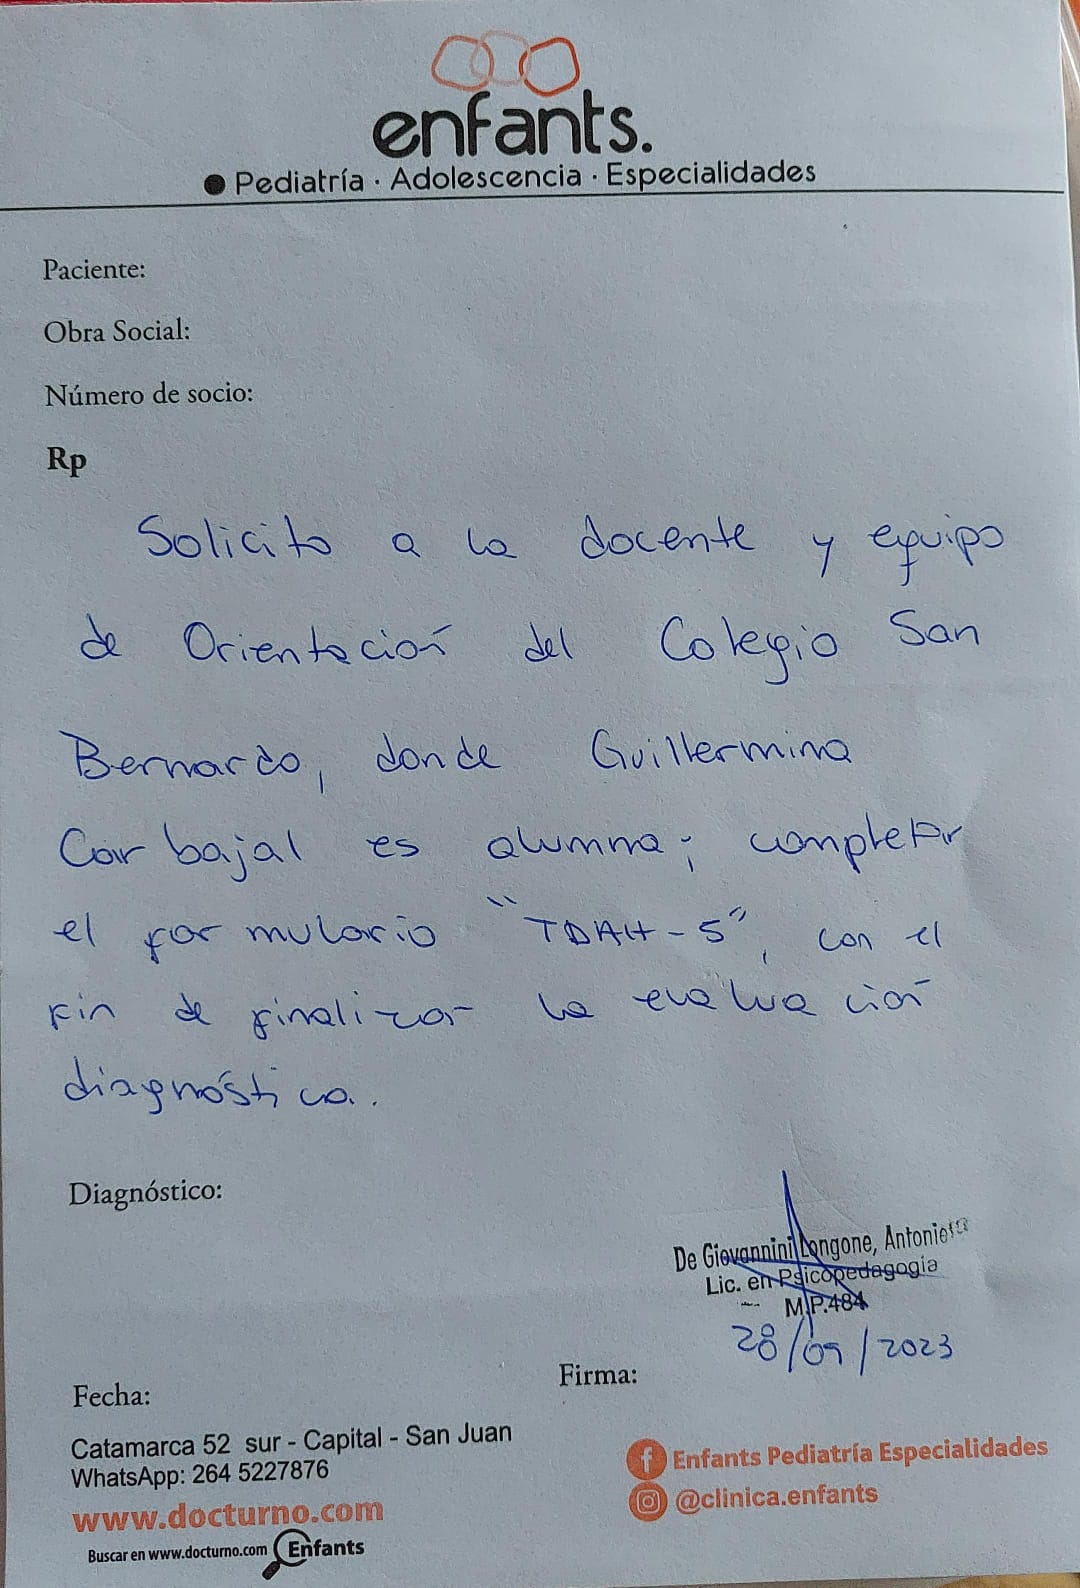 enfants.
Pediatría · Adolescencia · Especialidades
Paciente:
Obra Social:
Número de socio:
Rp
Solicito a la docente y equipo
de Orientación del Colegio San
Bernardo, donde Guillermina
Carbajal es alumna; completar
el formulario "TDAH-5", con el
fin de finalizar la evaluación
diagnóstica.
Diagnóstico:
De Giovannini Longone, Antonieta
Lic. en Psicopedagogía
M.P.484
28/09/2023
Firma:
Fecha:
Catamarca 52 sur - Capital - San Juan
WhatsApp: 264 5227876
www.docturno.com
Buscar en www.docturno.com Enfants
Enfants Pediatría Especialidades
@clinica.enfants